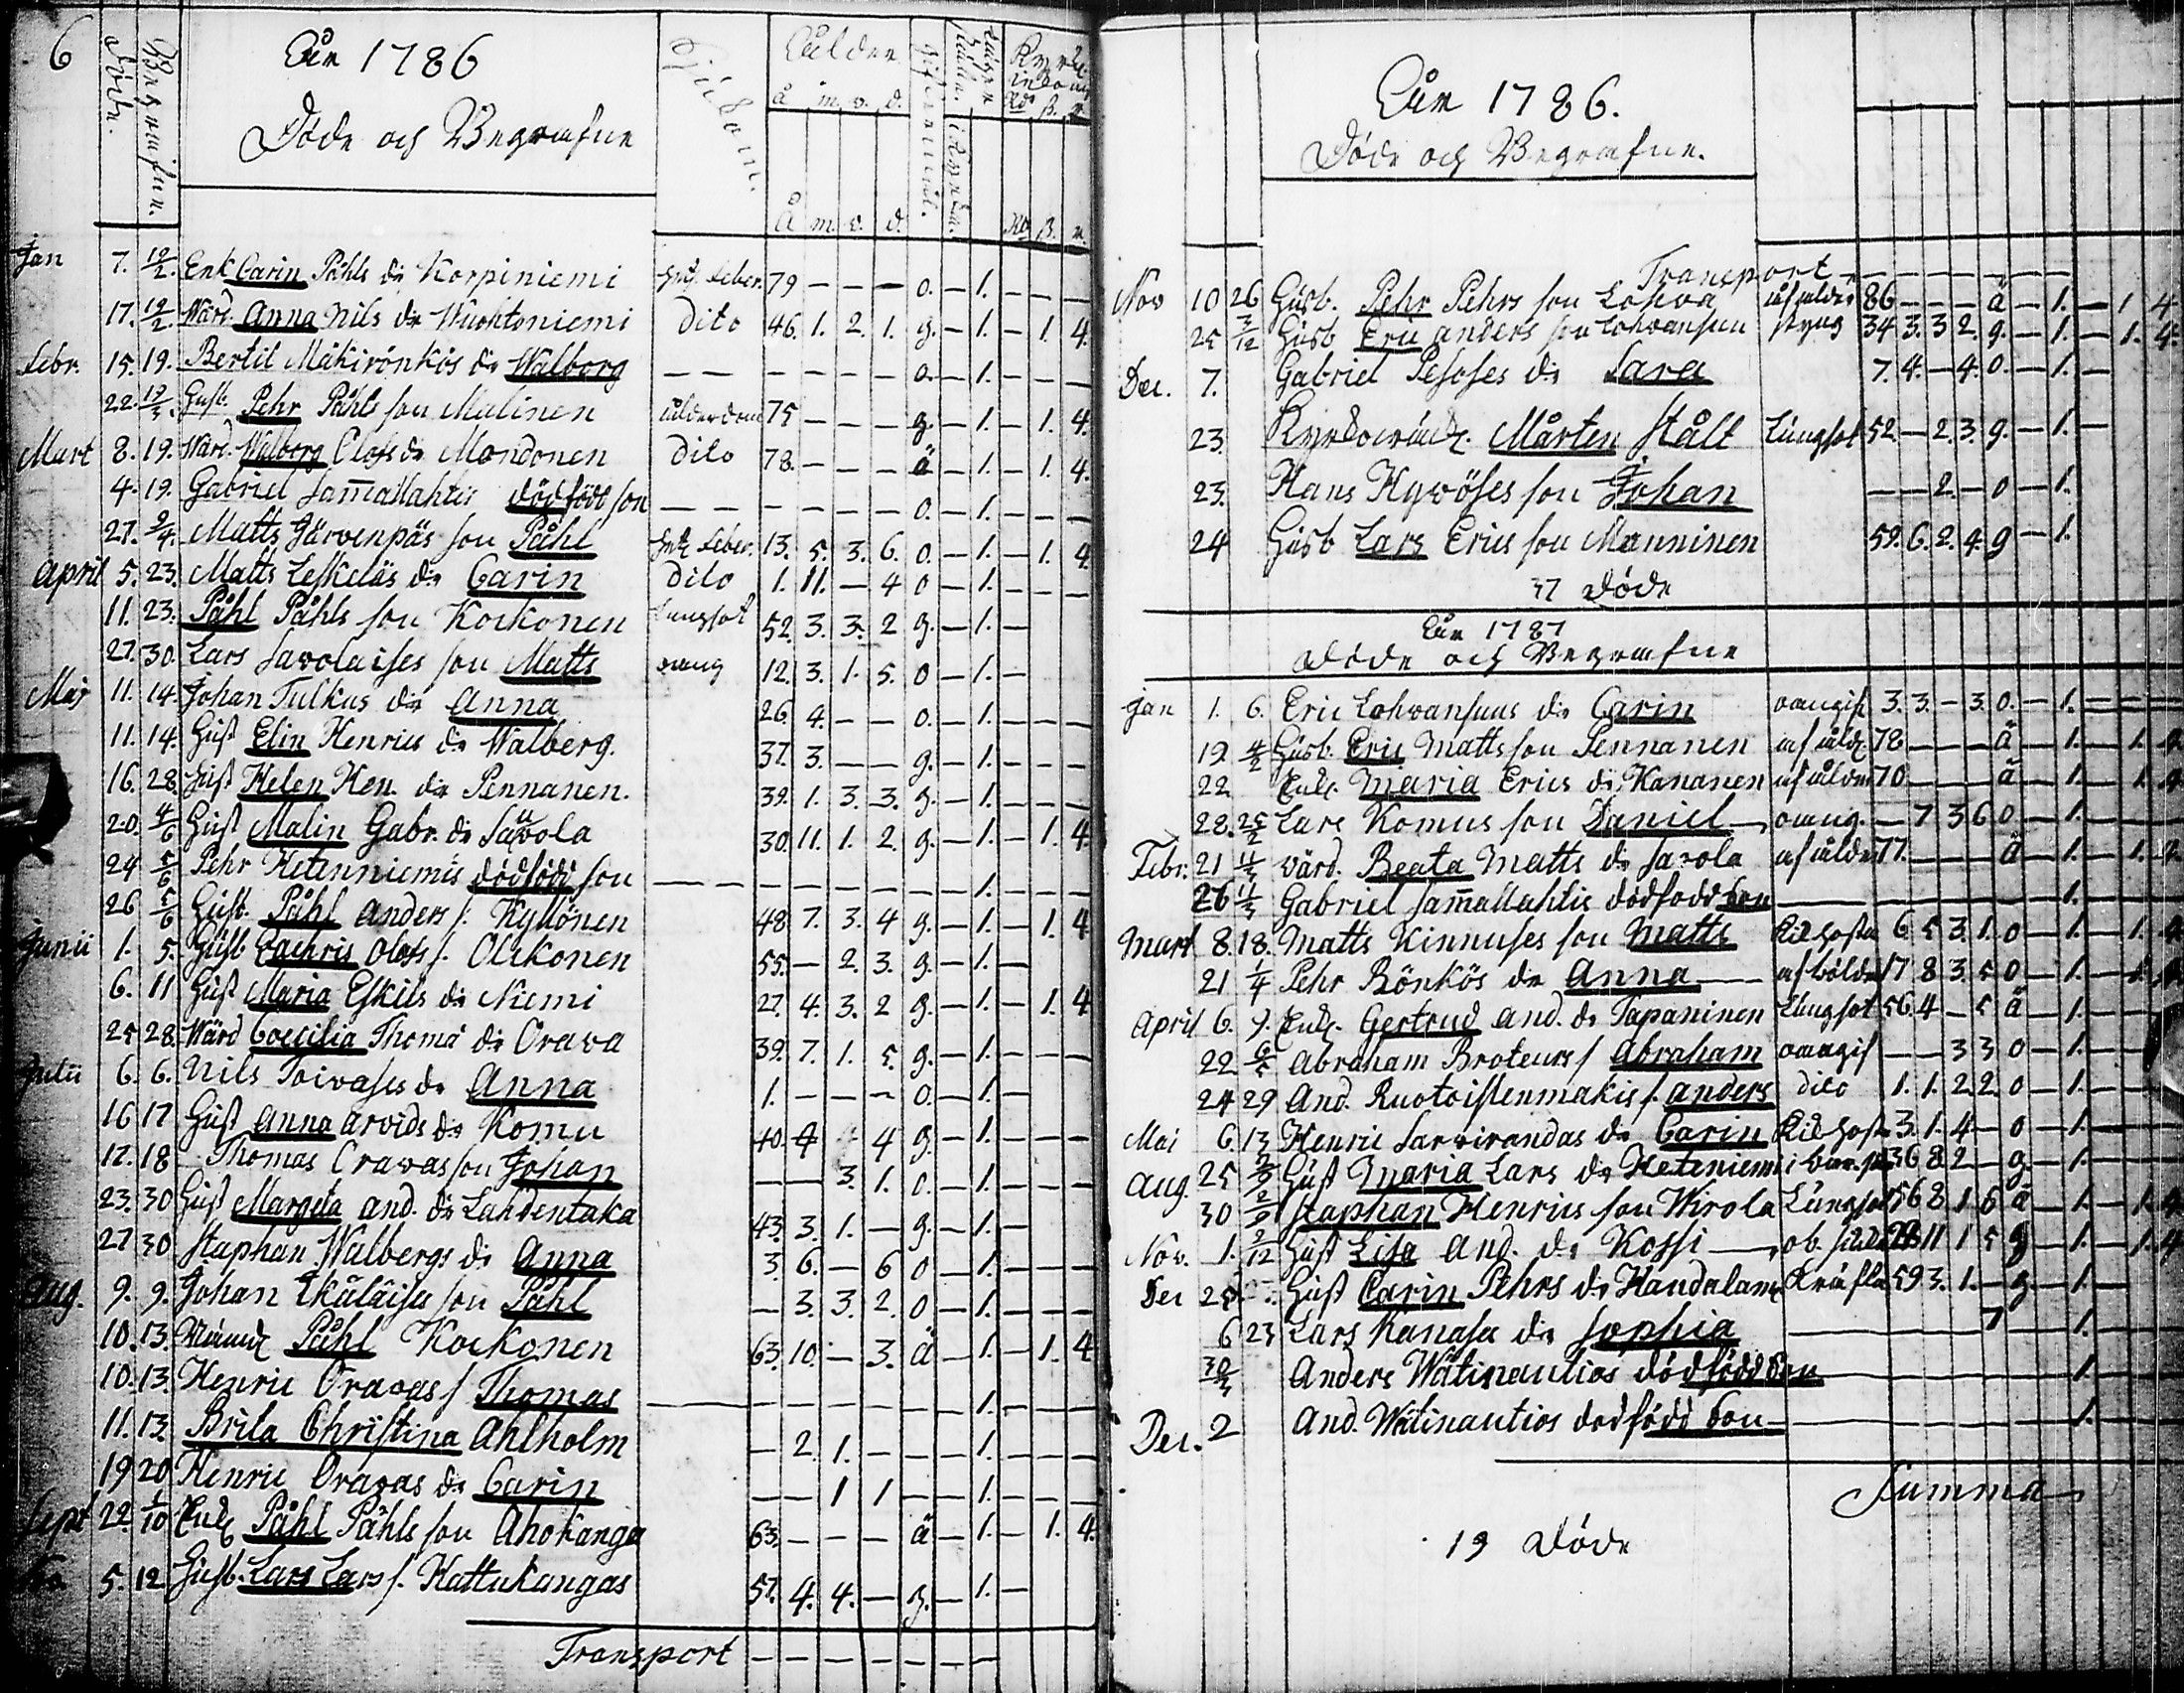 6
Åhr 1786
Döde och Begrafne
Döde.
Begrafne.
Siukdom.
Ålder
å m. v. d.
Å m. v. d. Rd ß. r.
Jan 7. 12/2. Enk Carin Påhls dr Korpiniemi Htz. feber. 79 — — — o. — 1. — — —
17. 12/2. Wärd. Anna Nils dr Wuohtoniemi Dito 46. 1. 2. 1. g. — 1. — 1. 4.
Febr. 15. 19. Bertil Mäkirönkös dr Walborg — — — — — — o. — 1. — — —
22. 12/3. Husb. Pehr Påhls son Malinen ålderdom 75 — — — g. — 1. — 1. 4.
Mart 8. 19. Wärd. Walborg Olofs dr Mondonen Dito 78. — — — ä — 1. — 1. 4.
4. 19. Gabriel Sam̄allahtis dödfödt son — — — — — — o. — 1. — — —
27. 2/4. Matts Järvenpäs son Påhl Htz feber. 13. 5. 3. 6. o. — 1. — 1. 4
April 5. 23. Matts Leskeläs dr Carin Dito 1. 11. — 4 o — 1. — — —
11. 23. Påhl Påhls son Kockonen Lungsot 52. 3. 3. 2 g. — 1. —
27. 30. Lars Savolaises son Matts 12. 3. 1. 5. o — 1. —
Maj 11. 14. Johan Tulkus dr Anna 26. 4. — — o. — 1. — — —
11. 14. Hust Elin Henrics dr Walberg. 37. 3. — — g. — 1. — — —
16. 28. Hust Helen Hen. dr Pennanen. 39. 1. 3. 3. g. — 1. — — —
20. 4/6 Hust Malin Gabr. dr Savola 30. 11. 1. 2. g. — 1. — 1. 4.
24 5/6 Pehr Hetenniemis dödfödd son — — — — — — — — 1. — — —
26 5/6 Husb. Påhl Anders s. Kyllönen 48 7. 3. 4 g. — 1. — 1. 4
Junii 1. 5. Husb Zachris Olofs s. Olckonen 55. — 2. 3. g. — 1. —
6. 11 Hust Maria Eskils dr Niemi 27. 4. 3. 2 g. — 1. — 1. 4
25 28. Wärd Coecilia Thoma dr Orava 39. 7. 1. 5. g. — 1. — — —
Julii 6. 6. Nils Toivases dr Anna 1. — — — o. — 1. —
16 17 Hust Anna Arvids dr Komu 40. 4 4 g. — 1. — — —
17. 18 Thomas Oravas son Johan — — 3. 1. o. — 1. — — —
23. 30 Hust Margeta And. dr Lahdentaka 43. 3. 1. — g. — 1. —
27 30 Staphan Walbergs dr Anna 3. 6. — 6 o — 1. — — —
Aug. 9. 9. Johan Ekäläises son Påhl — 3. 3. 2. o — 1. — — —
10. 13. Påhl Kockonen 63. 10. — 3. ä — 1. — 1. 4
10. 13. Henric Oravas s Thomas — — — — — — — 1. — — —
11. 13. Brita Christina Ahlholm — 2. 1. — — — 1. — — —
19 20 Henric Oravas dr Carin — — 1 1 — — 1. — — —
Sept 22. 1/10 Enkl Påhl Påhls son Ahokanga 63. — — — ä — 1. — 1. 4.
5. 12 Husb. Lars Lars s. Kattukangas 57. 4. 4. — g. — 1. —
Transport — — — — — — —
Åhr 1786.
Döde och Begrafne.
Transport — — — — — —
Nov 10 26 Husb. Pehr Pehrs son Lohva af ålder 86 — — — ä — 1. — 1. 4
25 3/12 Husb Eric Anders son Lohvansuu styng 34 3. 3 2. g. — 1. — 1. 4.
Dec. 7. Gabriel Pesoses dr Sara 7. 4. — 4. o. — 1. —
23. Kyrkowärd. Mårten Stålt Lungsot 52. — 2. 3. g. — 1. —
23. Hans Hyvöses son Johan — — 2. — o — 1.
24 Husb Lars Erics son Manninen 59. 6. 2. 4. g — 1.
37 Döde
Åhr 1787
Döde och Begrafne
Jan 1. 6. Eric Lohvansuus dr Carin 3. 3. — 3. o. — 1. — —
19. 4/2 Husb. Eric Matts son Pennanen af åld. 78 — — — ä — 1. — 1. 4
22 Enk. Maria Erics dr Kananen af ålder 70 — — — ä — 1. — 1. 4
28. 25/2 Lars Komus son Daniel — 7 3 6 o — 1. —
Febr. 21 11/3 wärd. Beata Matts dr Savola af ålder 77. — — — ä — 1. — 1. 4
26 11/3 Gabriel Sam̄allahtis dödfödd son — — — — — 1. —
Mart 8. 18. Matts Kinnuses son Matts Kikhosta 6 5 3. 1. o — 1. — 1. 4
21 1/4 Pehr Rönkös dr Anna 17 8 3. 5 o — 1. — 1. 4
April 6. 9. Enk. Gertrud And. dr Tapaninen Lungsot 56 4 — 5 ä — 1. —
22 6/5 Abraham Broteurs s Abraham — — 3 3 o — 1. —
24 29 And. Ruotoistenmakis s. Anders dito 1. 1. 2. 2. o — 1. —
Mai 6. 13 Henric Sarvirandas dr Carin Kikhosta 3. 1. 4 — o — 1. —
Aug. 25 2/9 Hust Maria Lars dr Heteniemi i barns. 36 8 2 — g. — 1. —
30 2/9 Staphan Henrics son Wirola Lungsot 56 8 1 6 ä — 1. — 1. 4
Nov. 1. 2/12 Hust Lisa And. dr Kossi 11 1 5 g — 1. — 1. 4
Dec 25 Hust Carin Pehrs dr Kandalam Kräfta 59 3. 1. — g. — 1. —
6 23 Lars Kanasa dr Sophia — 7 1. —
30/3 Anders Wätinautios dödfödd son — — — 1. —
Dec. 2 And. Wätinautios dödfödd son — — — 1. —
Summa
19 Döde